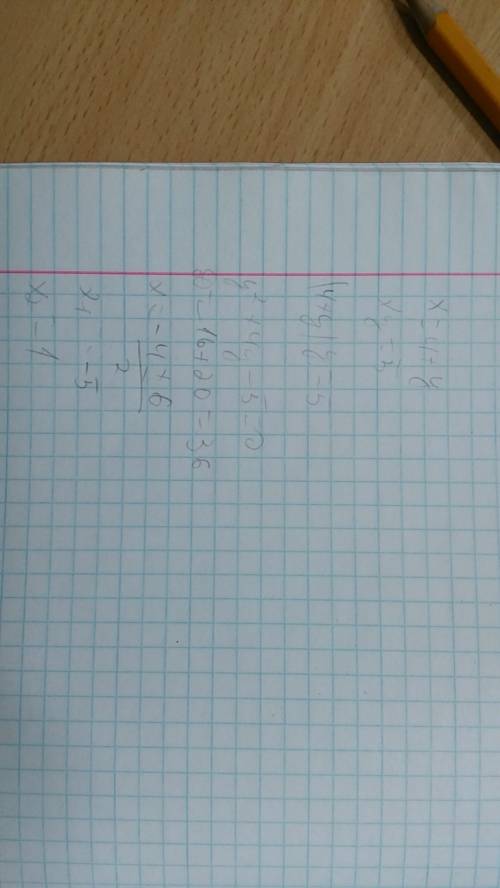 x = 4 + y
xy = 5
(4+y)y = 5
y² + 4y - 5 = 0
D = 16 + 20 = 36
x = -4 ± 6 / 2
x1 = -5
x2 = 1